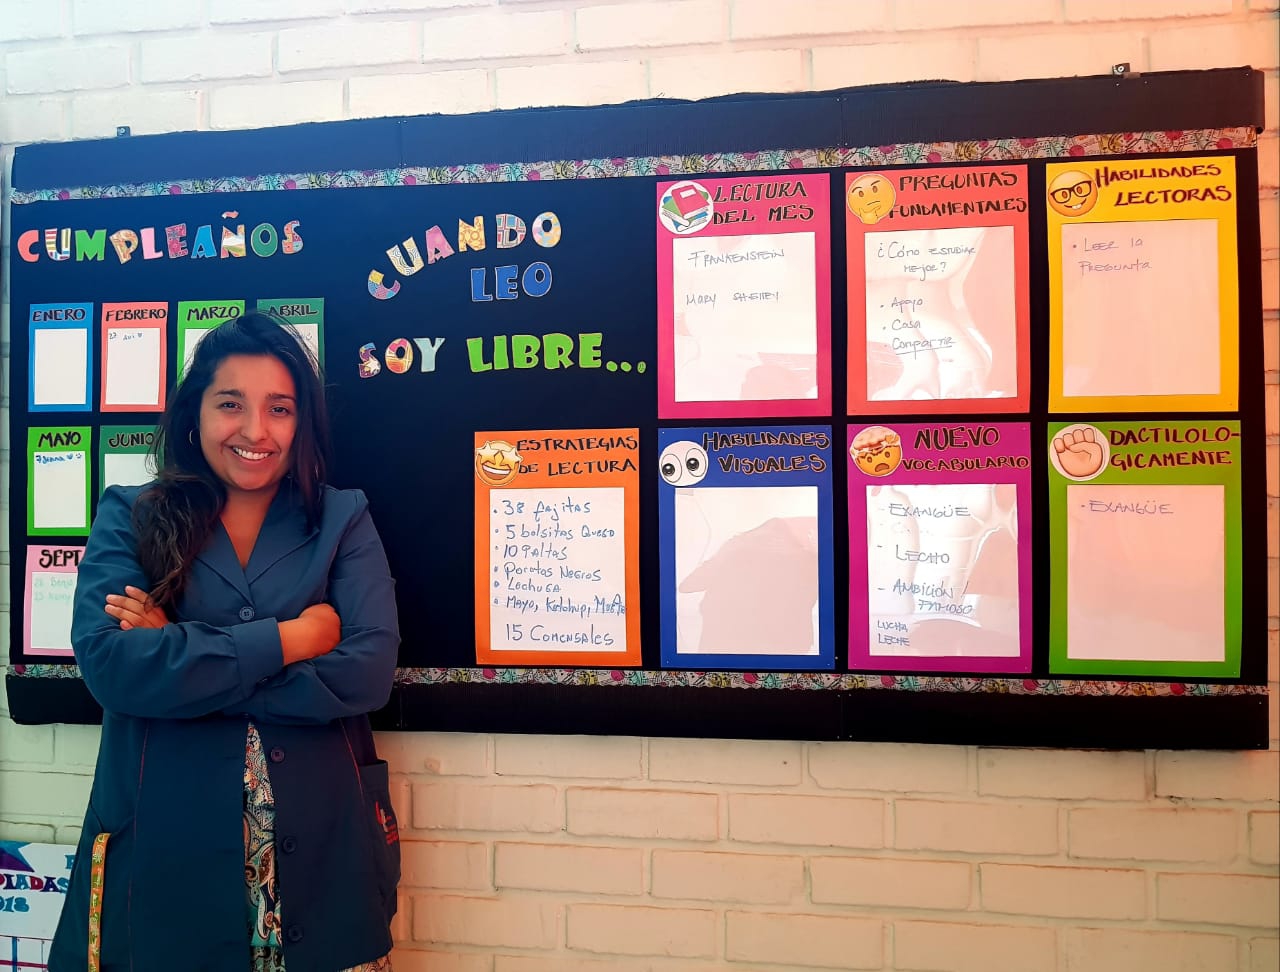 CUMPLEAÑOS
CUANDO
LEO
SOY LIBRE...
ENERO
FEBRERO
27
MARZO
ABRIL
MAYO
7
JUNIO
SEPT
LECTURA
DEL MES
FRANKENSTEIN
MARY SHELLEY
PREGUNTAS
FUNDAMENTALES
¿CÓMO ESTUDIAR
MEJOR?
• Apoyo
• Casa
• Compartir
HABILIDADES
LECTORAS
• LEER la
Pregunta
ESTRATEGIAS
DE LECTURA
• 38 fajitas
• 5 bolsitas QUESO
• 10 PALTAS
• Porotos NEGROS
• Mayo, Ketchup,
15 COMENSALES
HABILIDADES
VISUALES
NUEVO
VOCABULARIO
- EXANGÜE
- LECHO
- AMBICIÓN /
FAMOSO
LUCHA
LECHE
DACTILOLO-
GICAMENTE
- EXANGÜE
2018